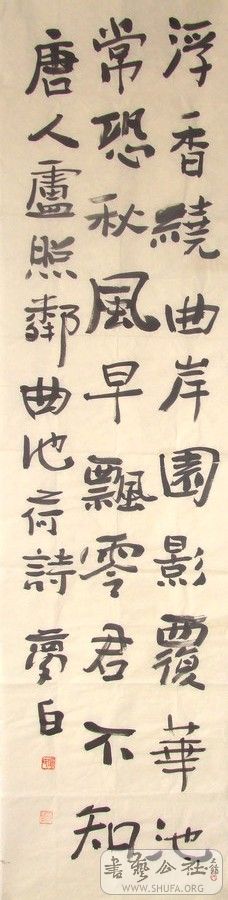 浮香繞曲岸園影覆華池
常恐秋風早飄零君不知
唐人盧照鄰曲池荷詩 夢白
書藝公社
WWW.SHUFA.ORG